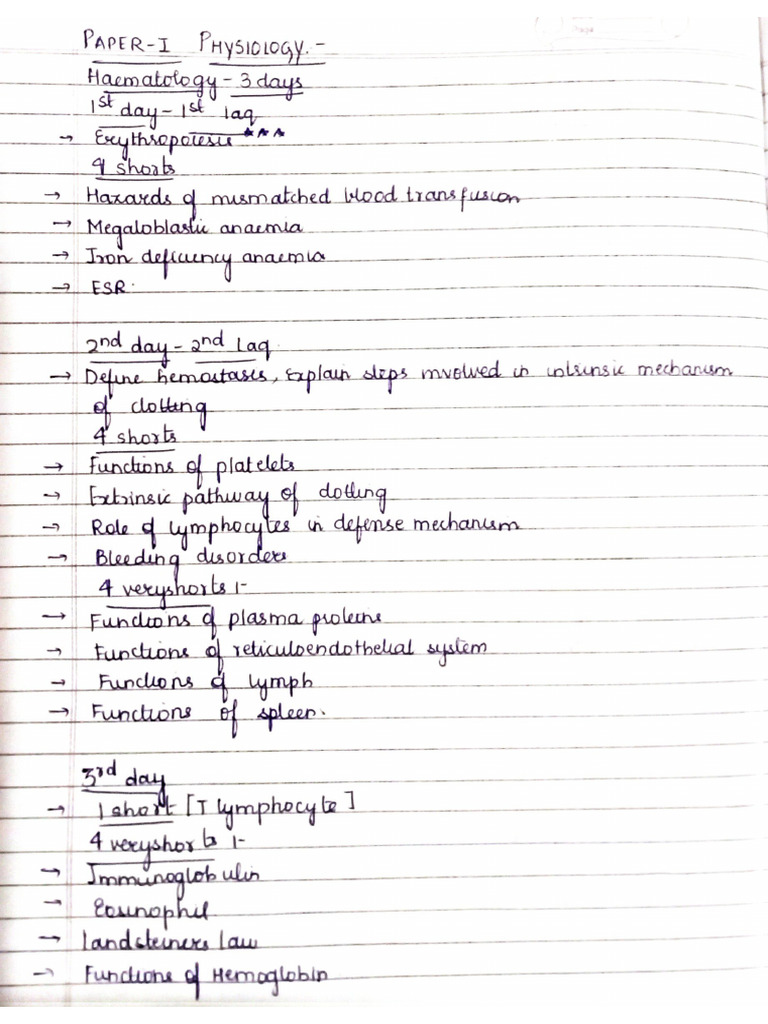 PAPER-I PHYSIOLOGY.-
Haematology - 3 days
1st day - 1st laq
→ Erythropoiesis ***
4 shorts
→ Hazards of mismatched blood transfusion
→ Megaloblastic anaemia
→ Iron deficiency anaemia
→ ESR.
2nd day - 2nd laq.
→ Define hemostases, Explain steps involved in intrinsic mechanism
of clotting
4 shorts
→ Functions of platelets
→ Extrinsic pathway of clotting
→ Role of lymphocytes in defense mechanism
→ Bleeding disorders
4 veryshorts :-
→ Functions of plasma proteins
→ Functions of reticuloendothelial system
→ Functions of lymph
→ Functions of spleen.
3rd day
→ 1 short [T lymphocyte]
4 veryshorts :-
→ Immunoglobulin
→ Eosinophil
→ Landsteiners law
→ Functions of Hemoglobin